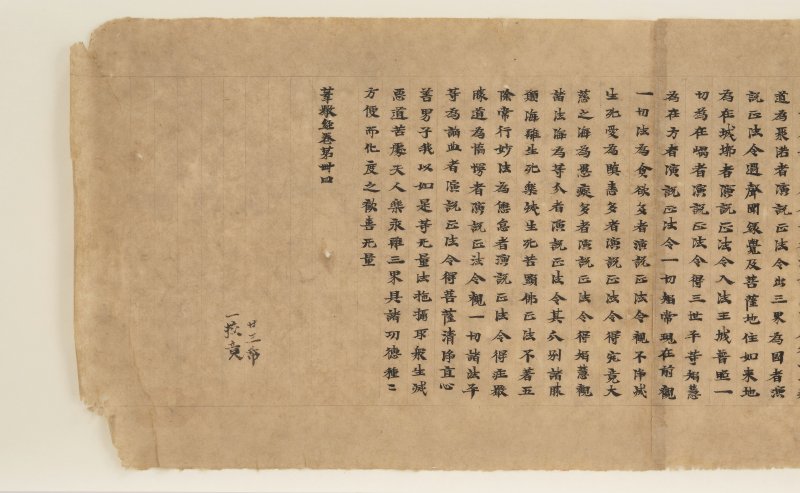 道為衆濟者演說正法令出三界為國者演
說正法令過聲聞緣覺及菩薩地住如来地
為在城墎者演說正法令入法王城普照一
切為在嵎者演說正法令得三世平等知慧
為在方者演說正法令一切知常現在前觀
一切法為貪欲多者演說正法令觀不淨滅
生死愛為瞋恚多者演說正法令得究竟大
慈之海為愚癡多者演說正法令得知慧觀
諸法海為等分者演說正法令其分別諸勝
願海離生死樂
生死苦願佛正法不著五
陰常行妙法為懈怠者演說正法令得莊嚴
勝道為憍慢者演說正法令觀一切諸法平
等為諂曲者演說正法令得菩薩清淨直心
善男子我以如是等无量法施攝取衆生滅
惡道苦受天人樂永離三界具諸功德種〻
方便而化度之歡喜无量
華嚴經卷第卌四
廿三帋
一挍竟